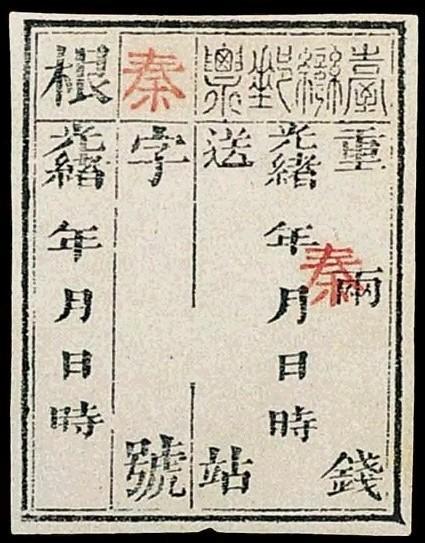 臺灣郵票
重 兩 錢
秦
光緒 年 月 日 時
送 站
秦字 號
根
光緒 年 月 日 時